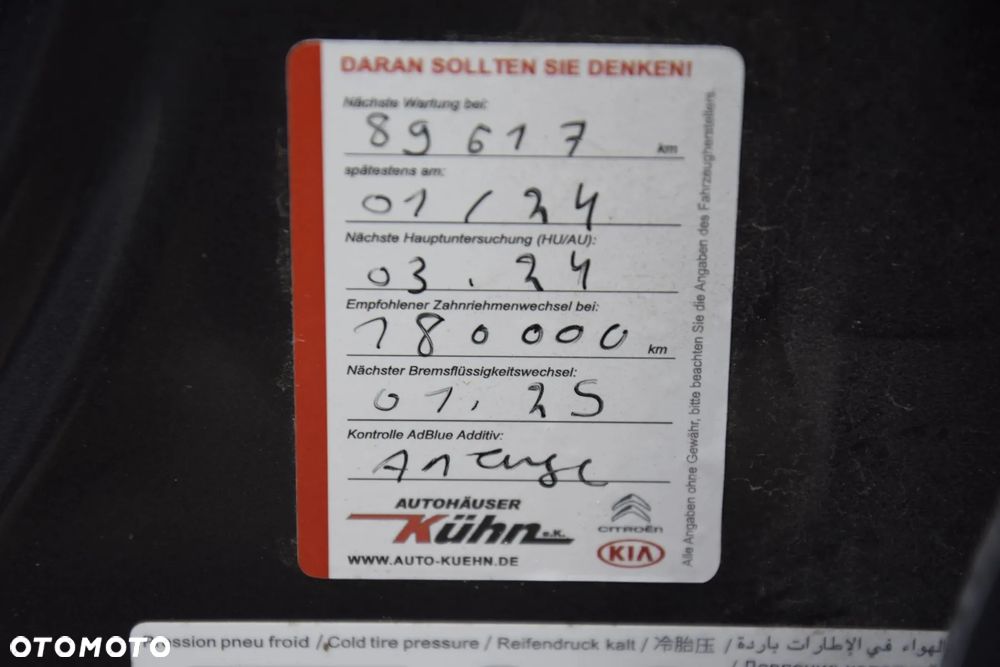 DARAN SOLLTEN SIE DENKEN!
Nächste Wartung bei:
89617 km
spätestens am:
01/24
Nächste Hauptuntersuchung (HU/AU):
03.24
Empfohlener Zahnriehmenwechsel bei:
180000 km
Nächster Bremsflüssigkeitswechsel:
01.25
Kontrolle AdBlue Additiv:
Anzeige
AUTOHÄUSER
Kühn e.K.
WWW.AUTO-KUEHN.DE
CITROËN
KIA
Alle Angaben ohne Gewähr, bitte beachten Sie die Angaben des Fahrzeugherstellers.
pneu froid / Cold tire pressure / Reifendruck kalt / 冷胎压 / الهواء في الإطارات باردة /
OTOMOTO